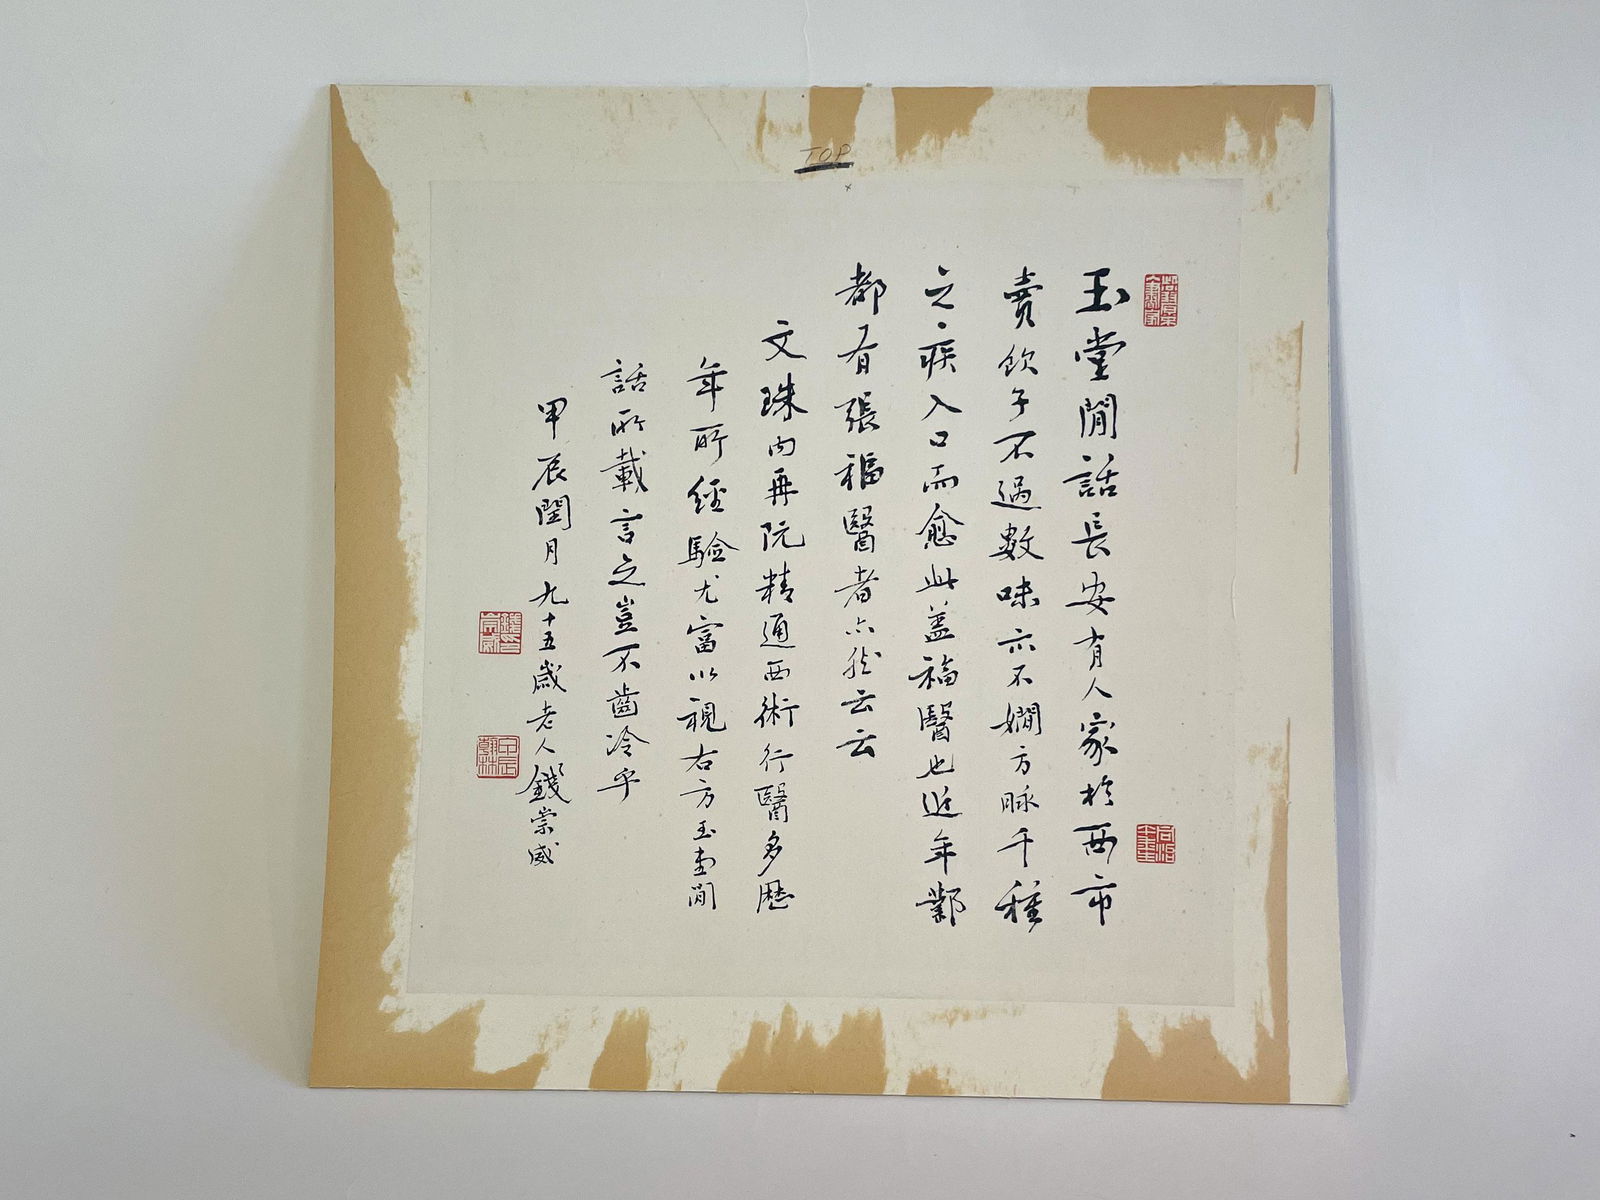 TOP
玉堂閒話長安有人家於西市
賣飲子不過數味亦不嫺方脉千種
之疾入口而愈此蓋福醫也近年鄴
都有張福醫者亦然云云
文珠內再阮精通西術行醫多歷
年所經驗尤富以視右方玉堂閒
話所載言之豈不齒冷乎
甲辰閏月九十五歲老人錢崇威
錢崇威印